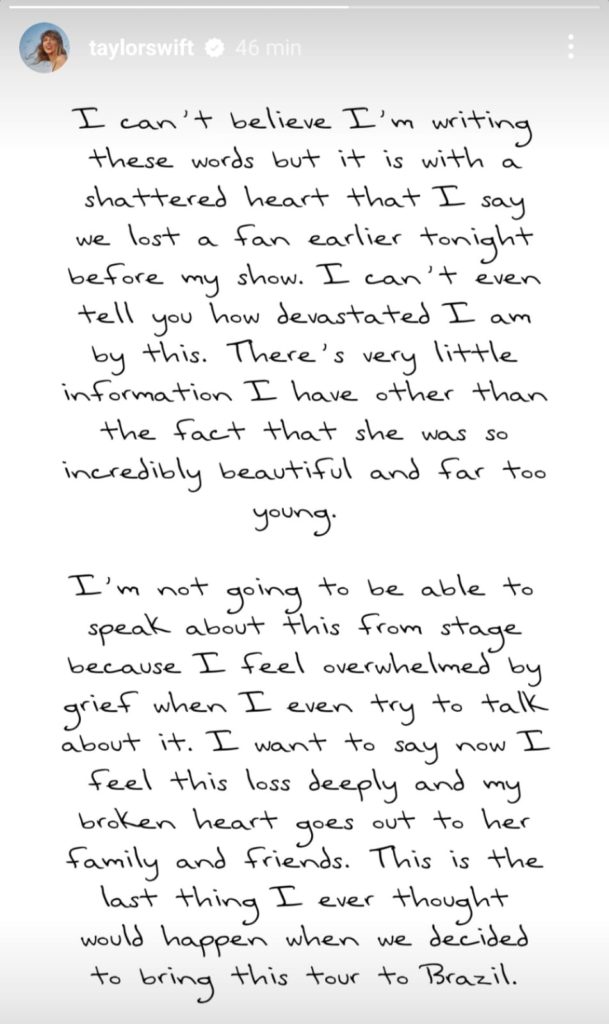 taylorswift 46 min
I can't believe I'm writing
these words but it is with a
shattered heart that I say
we lost a fan earlier tonight
before my show. I can't even
tell you how devastated I am
by this. There's very little
information I have other than
the fact that she was so
incredibly beautiful and far too
young.
I'm not going to be able to
speak about this from stage
because I feel overwhelmed by
grief when I even try to talk
about it. I want to say now I
feel this loss deeply and my
broken heart goes out to her
family and friends. This is the
last thing I ever thought
would happen when we decided
to bring this tour to Brazil.